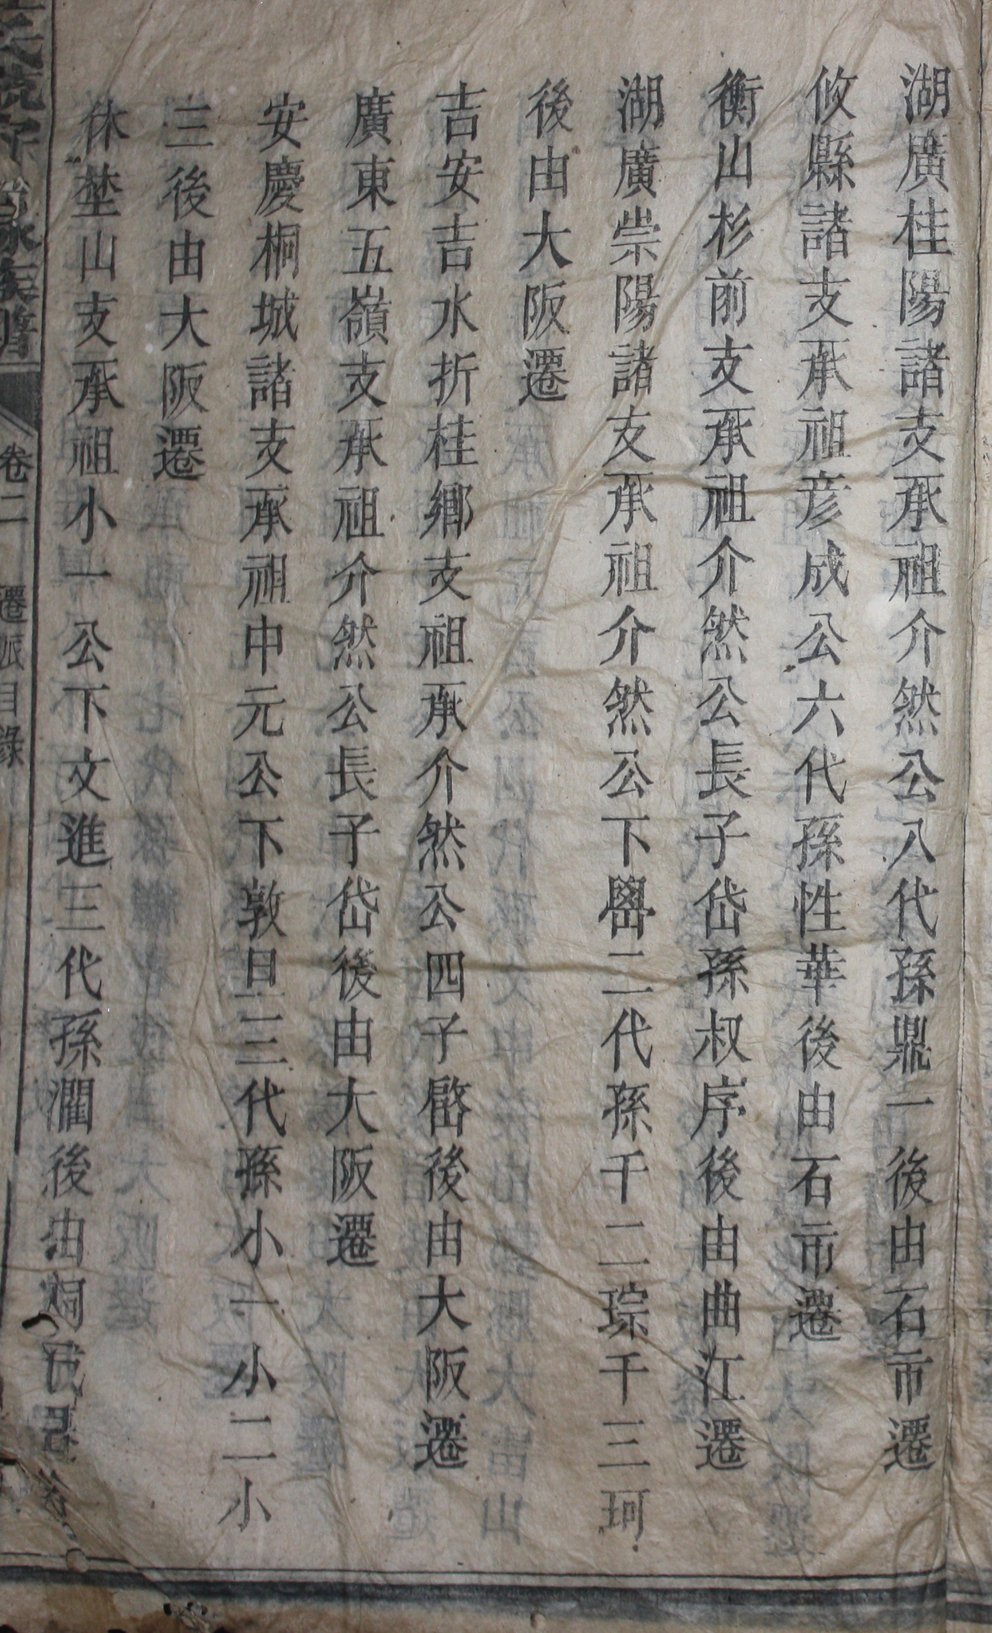 湖廣桂陽諸支承祖介然公八代孫鼎一後由石市遷
攸縣諸支承祖彦成公六代孫性華後由石市遷
衡山杉前支承祖介然公長子岱孫叔序後由曲江遷
湖廣崇陽諸支承祖介然公下嶨二代孫千二琮千三珂
後由大阪遷
吉安吉水折桂鄉支祖承介然公四子啓後由大阪遷
廣東五嶺支承祖介然公長子岱後由大阪遷
安慶桐城諸支承祖中元公下敦旦三代孫小一小二小
三後由大阪遷
休埜山支承祖小一公下文進三代孫瀾後由桐城
族譜 卷二 遷派目錄